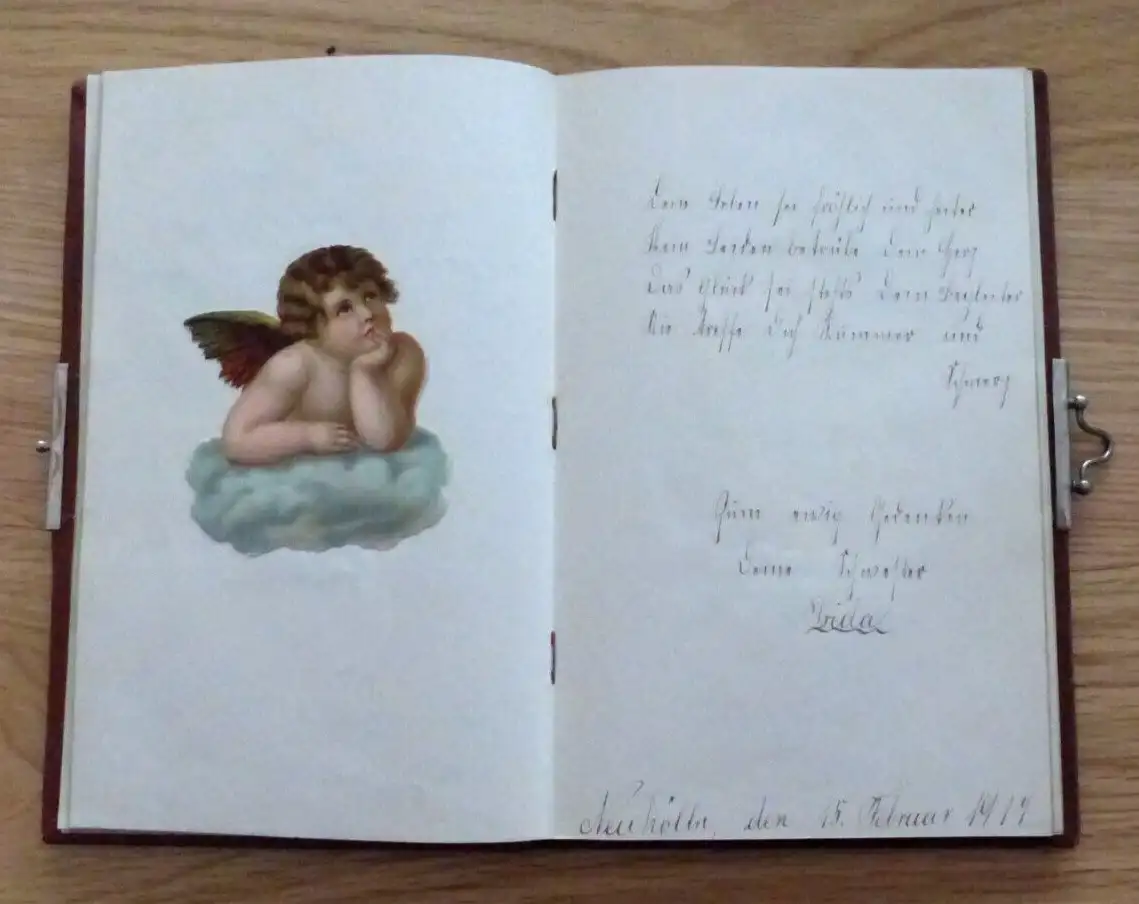 Dein Leben sei fröhlich und heiter
Kein Leiden betrübe Dein Herz
Das Glück sei stets Dein Begleiter
Nie treffe Dich Kummer und
Schmerz
Zum ewig Gedenken
Deine Schwester
Neukölln, den 15. Februar 1917